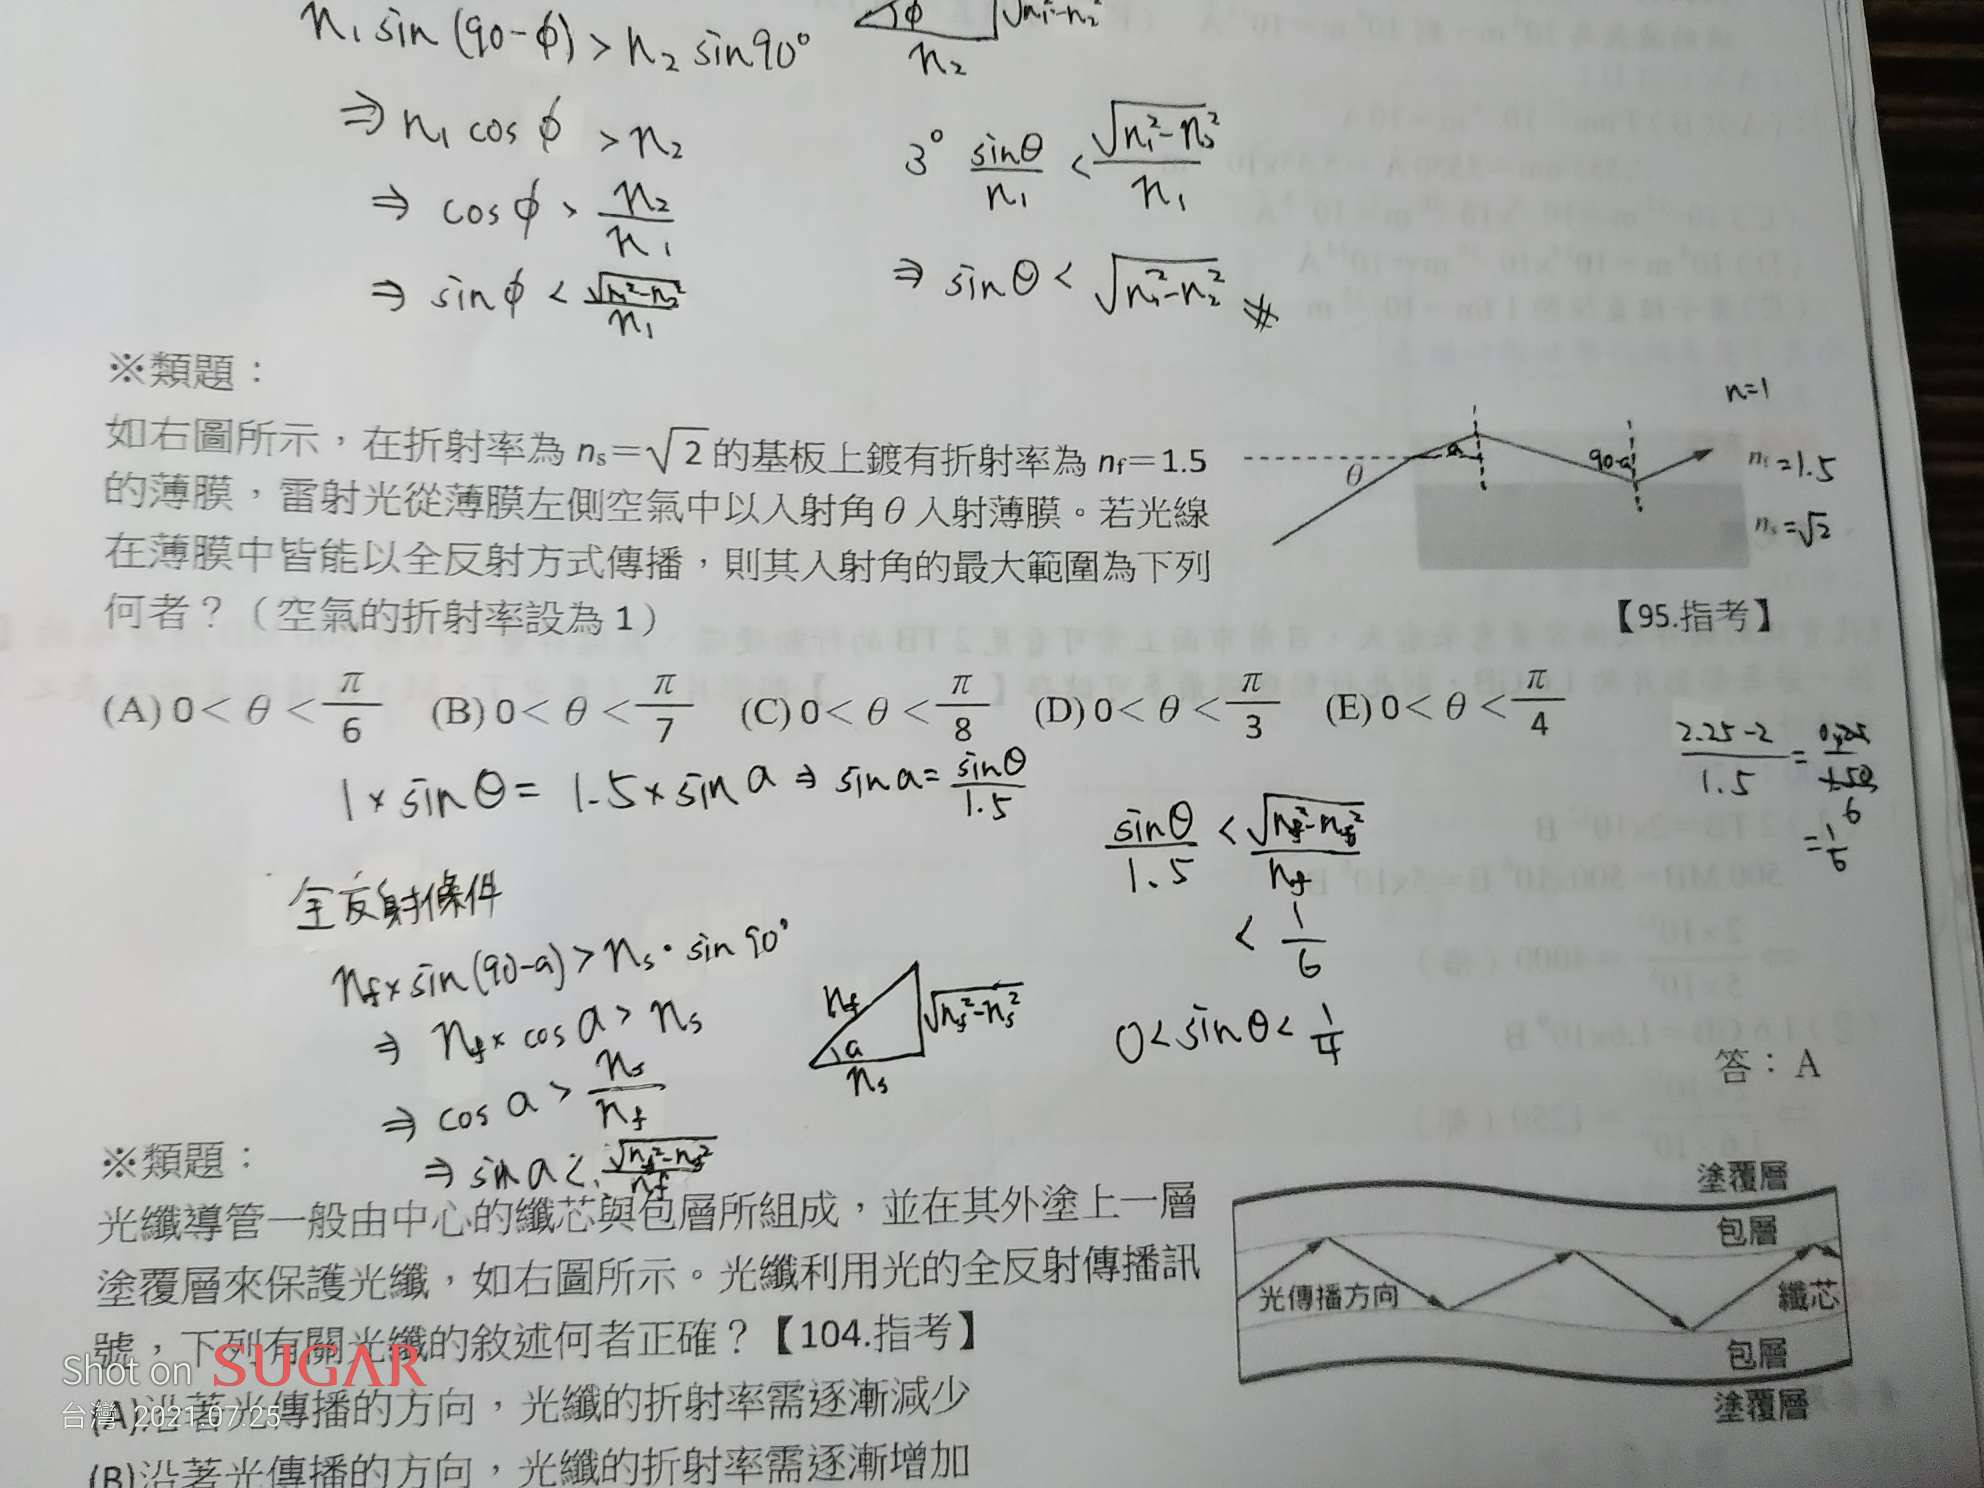 n₁ sin (90-ϕ) > n₂ sin90°
ϕ
n₂
√n₁²-n₂²
⇒ n₁ cos ϕ > n₂
⇒ cos ϕ > n₂/n₁
⇒ sin ϕ < √n₁²-n₂²/n₁
3° sinθ/n₁ < √n₁²-n₂²/n₁
⇒ sin θ < √n₁²-n₂² #
※類題：
如右圖所示，在折射率為 nₛ＝√2 的基板上鍍有折射率為 n_f＝1.5
的薄膜，雷射光從薄膜左側空氣中以入射角 θ 入射薄膜。若光線
在薄膜中皆能以全反射方式傳播，則其入射角的最大範圍為下列
何者？（空氣的折射率設為 1）
【95.指考】
n=1
θ
a
90-a
n_f =1.5
nₛ =√2
(A) 0＜ θ ＜π/6 (B) 0＜ θ ＜π/7 (C) 0＜ θ ＜π/8 (D) 0＜ θ ＜π/3 (E) 0＜ θ ＜π/4
1 × sin θ = 1.5 × sin a ⇒ sin a = sinθ/1.5
2.25-2/1.5 =
= 1/6
全反射條件
n_f × sin (90-a) > nₛ · sin 90°
⇒ n_f × cos a > nₛ
⇒ cos a > nₛ/n_f
⇒ sin a < √n_f²-nₛ²/n_f
n_f
a
nₛ
√n_f²-nₛ²
sinθ/1.5 < √n_f²-nₛ²/n_f
< 1/6
0 < sin θ < 1/4
答：A
※類題：
光纖導管一般由中心的纖芯與包層所組成，並在其外塗上一層
塗覆層來保護光纖，如右圖所示。光纖利用光的全反射傳播訊
號，下列有關光纖的敘述何者正確？【104.指考】
(A)沿著光傳播的方向，光纖的折射率需逐漸減少
(B)沿著光傳播的方向，光纖的折射率需逐漸增加
塗覆層
包層
光傳播方向
纖芯
包層
塗覆層
Shot on SUGAR
台灣 2021.07.25